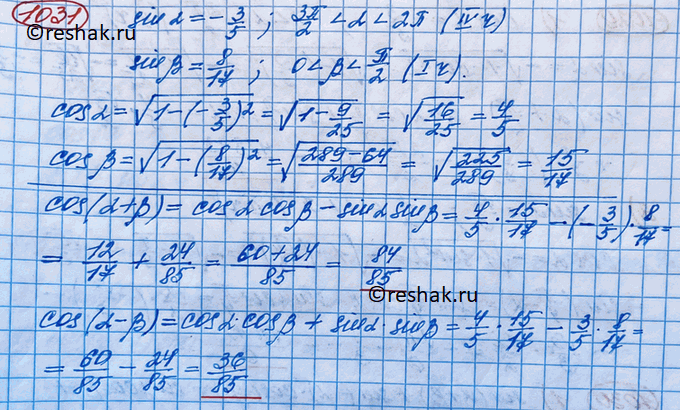 1031 sin α = -3/5 ; 3π/2 < α < 2π (IV ч)
sin β = 8/17 ; 0 < β < π/2 (I ч).
cos α = √(1-(-3/5)²) = √(1-9/25) = √(16/25) = 4/5
cos β = √(1-(8/17)²) = √((289-64)/289) = √(225/289) = 15/17
cos(α+β) = cos α cos β - sin α sin β = 4/5 · 15/17 - (-3/5) · 8/17 =
= 12/17 + 24/85 = (60+24)/85 = 84/85
©reshak.ru
cos(α-β) = cos α · cos β + sin α · sin β = 4/5 · 15/17 - 3/5 · 8/17 =
= 60/85 - 24/85 = 36/85